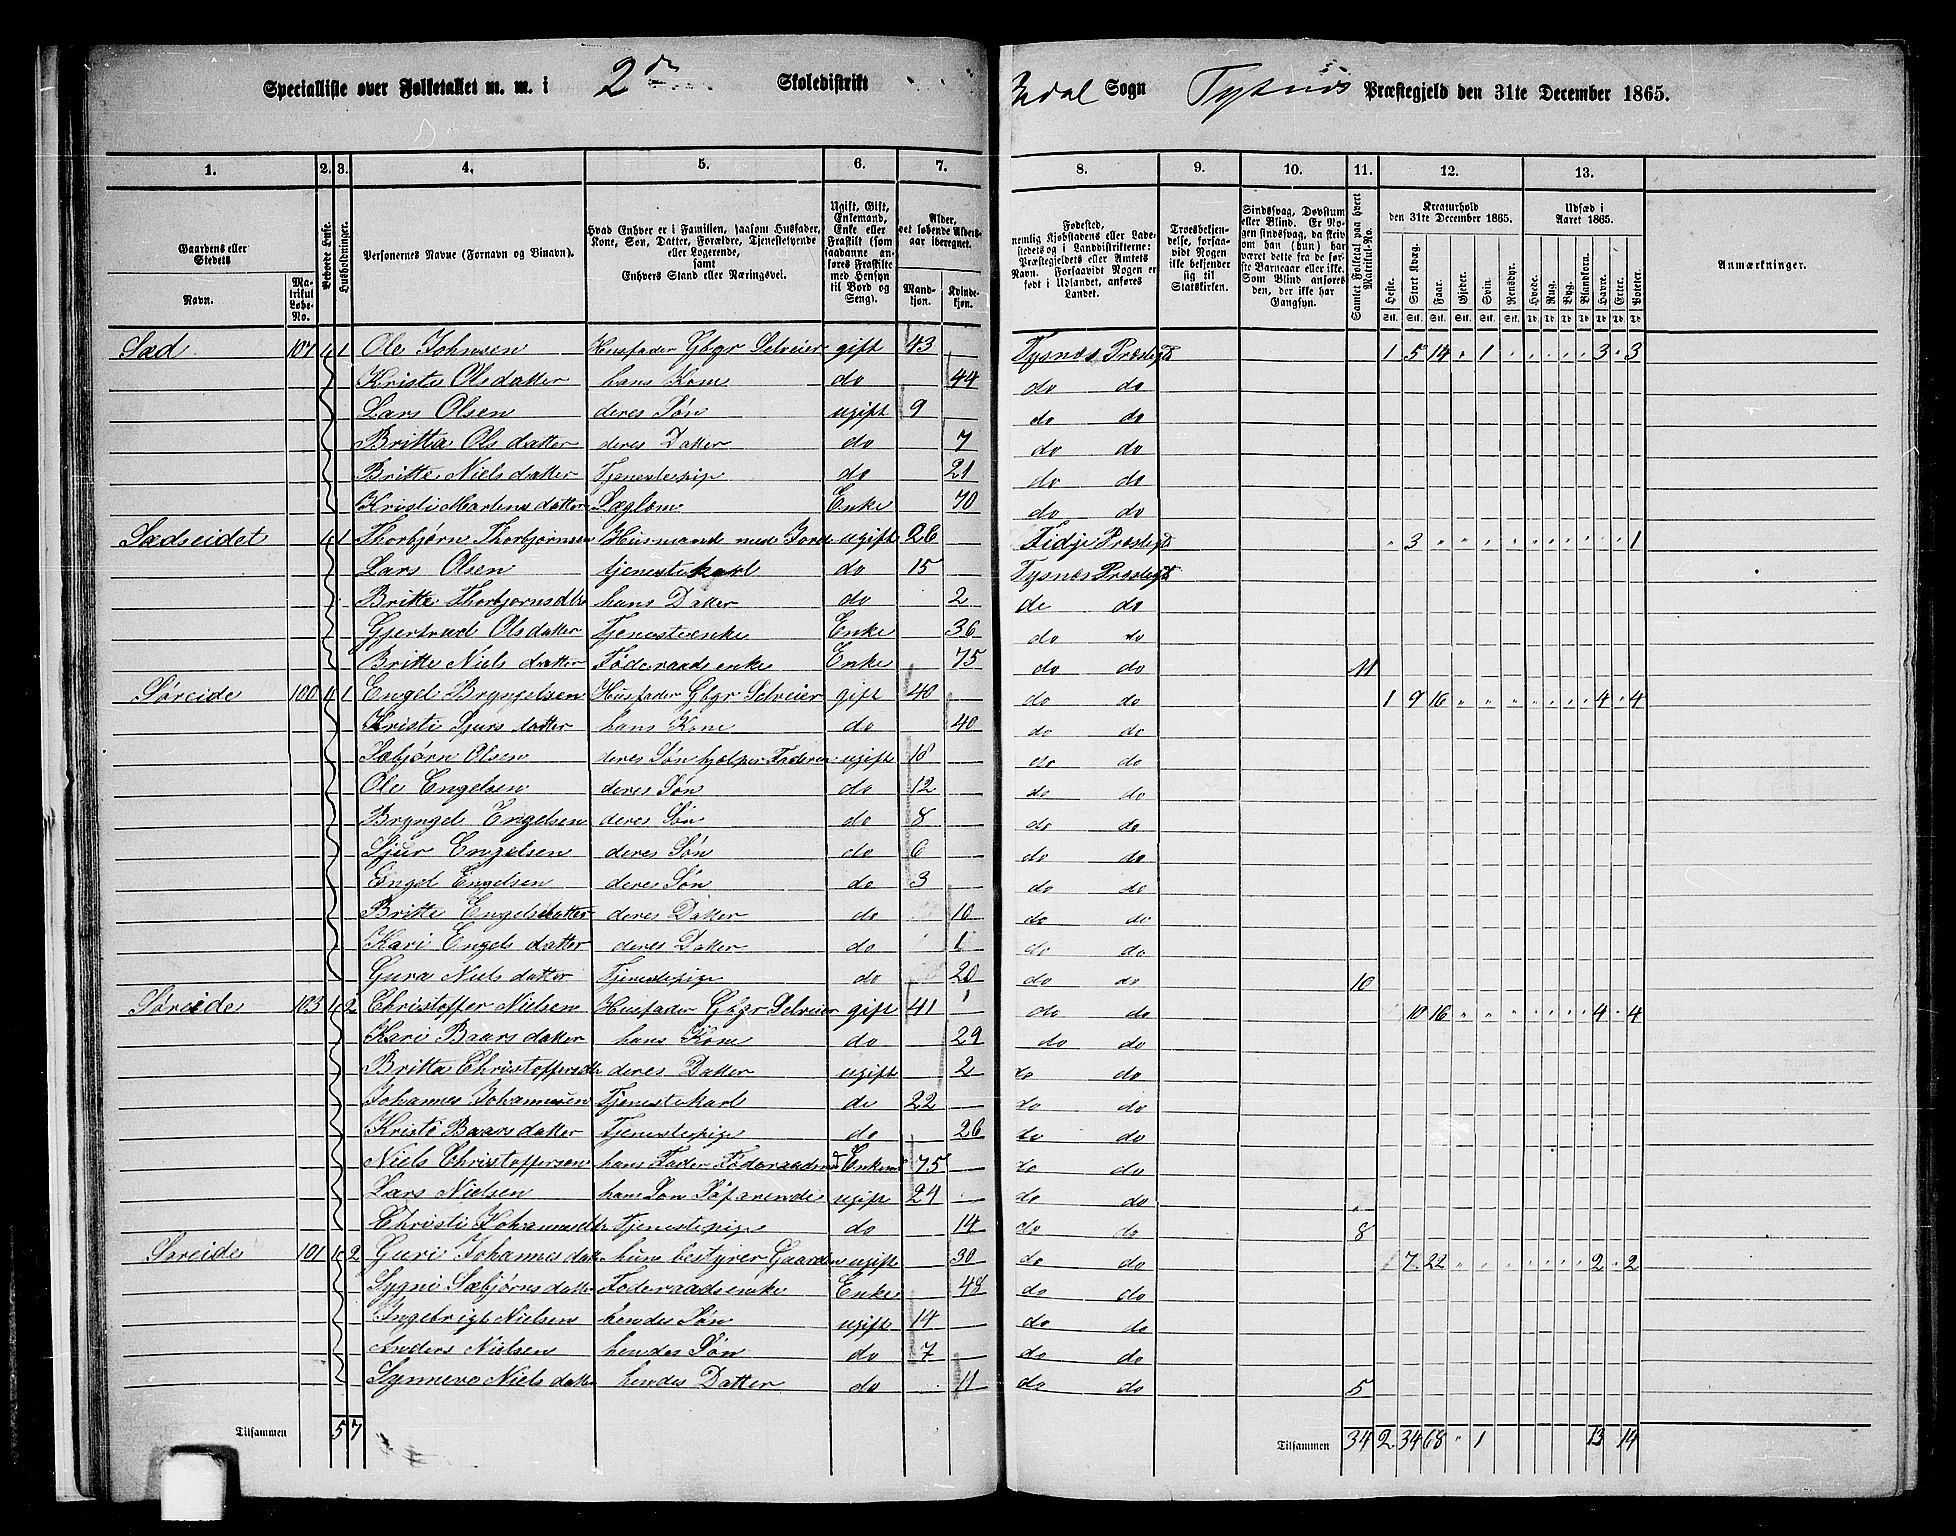 Specialliste over Folketallet m. m. i 2 Skoledistrikt Sogn Præstegjeld den 31te December 1865.
1. 2. 3. 4. 5. 6. 7. 8. 9. 10. 11. 12. 13.
Gaardens eller Stedets Navn. Matrikul Løbe-No. Beboede Huse. Husholdninger. Personernes Navne (Fornavn og Binavn). Hvad Enhver er i Familien, saasom Husfader, Kone, Søn, Datter, Forældre, Tjenestetyende eller Logerende, samt Enhvers Stand eller Næringsvei. Ugift, Gift, Enkemand, Enke eller Fraskilt (som saadanne anføres Fraskilte med Hensyn til Bord og Seng). Alder, det løbende Aldersaar iberegnet. Mandkjøn. Kvindekjøn. Fødested, nemlig Kjøbstadens eller Ladestedets og i Landdistrikterne: Præstegjeldets eller Amtets Navn. Forsaavidt Nogen er født i Udlandet, anføres Landet. Troesbekjendelse, forsaavidt Nogen ikke bekjender sig til Statskirken. Sindssvag, Døvstum eller Blind. Er Nogen sindssvag, da skrives om han (hun) har været dette fra de første Barneaar eller ikke. Som Blind anføres den, der ikke har Gangsyn. Samlet Folketal paa hvert Matrikul-No. Kreaturhold den 31te December 1865. Heste. Stort Kvæg. Faar. Gjeder. Svin. Rensdyr. Udsæd i Aaret 1865. Hvede. Rug. Byg. Blandkorn. Havre. Erter. Poteter. Anmærkninger.
Sæd 107 1 Ole Johnsen Husfader Gbgr Selveier gift 43 Tysnes Præstegd 1 5 14 1 3 3
Kristi Olsdatter hans Kone do 44 do do
Lars Olsen deres Søn ugift 9 do do
Britta Olsdatter deres Datter do 7 do do
Britte Nielsdatter Tjenestepige do 21 do do
Kristi Martensdatter Lægdlem Enke 70 do do
Sædseidet 1 Thorbjørn Thorbjørnsen Husmand med Jord ugift 26 Præstegd 3 1
Lars Olsen tjenestekarl do 15 Tysnes Præstegd
Britte Thorbjørnsdtr hans Datter do 2 do do
Gjertrud Olsdatter Tjenesteenke Enke 36 do do
Britte Nielsdatter Føderaadsenke Enke 75 do do 11
Søreide 100 1 Engel Bryngelsen Husfader Gbgr Selveier gift 40 do do 1 9 16 4 4
Kristi Sjursdatter hans Kone do 40 do do
Sæbjørn Olsen deres Søn hjælper Faderen ugift 18 do do
Ole Engelsen deres Søn do 12 do do
Bryngel Engelsen deres Søn do 8 do do
Sjur Engelsen deres Søn do 6 do do
Engel Engelsen deres Søn do 3 do do
Britte Engelsdatter deres Datter do 10 do do
Kari Engelsdatter deres Datter do 1 do do
Gura Nielsdatter Tjenestepige do 20 do do 10
Søreide 103 2 Christoffer Nielsen Husfader Gbgr Selveier gift 41 do do 10 16 4 4
Kari Baarsdatter hans Kone do 29 do do
Britta Christoffersdtr deres Datter ugift 2 do do
Johannes Johannesen Tjenestekarl do 22 do do
Baarsdatter Tjenestepige do 26 do do
Niels Christoffersen hans Fader Føderaadsmd Enkem 75 do do
Lars Nielsen hans Søn Søfarende ugift 24 do do
Christi Johannesdtr Tjenestepige do 14 do do 8
Søreide 101 2 Guri Johannesdatter hun bestyrer Gaarden ugift 30 do do 7 22 2 2
Sygni Sæbjørnsdatter Føderaadsenke Enke 48 do do
Ingebrigt Nielsen hendes Søn ugift 14 do do
Anders Nielsen hendes Søn do 7 do do
Synneve Nielsdatter hendes Datter do 11 do do 5
Tilsammen 5 7 Tilsammen 34 2 34 68 1 13 14